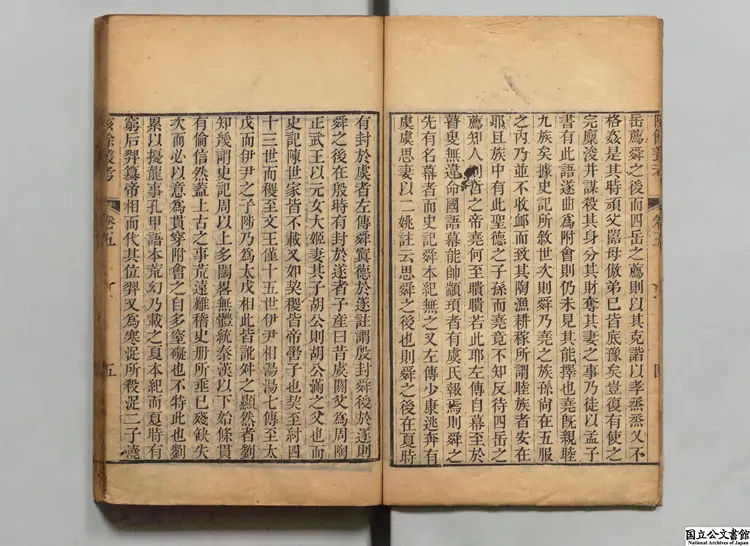 陔餘叢考 卷五 四
岳薦舜之後而四岳之薦則以其克諧以孝烝烝乂不
格姦是其時頑父嚚母傲弟已皆底豫矣豈復有使之
完廩浚井謀殺其身分其財奪其妻之事乃徒以孟子
書有此語遂曲爲附會則仍未見其能擇也堯旣親睦
九族矣據史記所敘世次則舜乃堯之族孫尙在五服
之內乃並不收䘏而致其陶漁耕稼所謂睦族者安在
耶且族中有此聖德之子孫而堯竟不知反待四岳之
薦知人則哲之帝堯何至聵聵若此耶左傳自幕至於
瞽瞍無違命國語幕能帥顓頊者有虞氏報焉則舜之
先有名幕者而史記舜本紀無之又左傳少康逃奔有
虞虞思妻以二姚註云思舜之後也則舜之後在夏時
有封於虞者左傳舜寘德於遂註謂殷封舜後於遂則
舜之後在殷時有封於遂者子產曰昔虞閼父爲周陶
正武王以元女大姬妻其子胡公則胡公滿之父也而
史記陳世家皆不載又如契稷皆帝嚳子也契至紂四
十三世而稷至文王僅十五世伊尹相湯湯七傳至太
戊而伊尹之子陟乃爲太戊相此皆訛舛之顯然者劉
知幾謂史記周以上多闕畧無體統秦漢以下始條貫
有倫信然蓋上古之事荒遠難稽史册所垂已殘缺失
次而必以意爲貫穿附會之自多窒礙也不特此也劉
累以擾龍事孔甲語本荒幻乃載之夏本紀而夏時有
窮后羿簒帝相而代其位羿又爲寒浞所殺浞二子澆
陔餘叢考 卷五 五
国立公文書館
National Archives of Japan